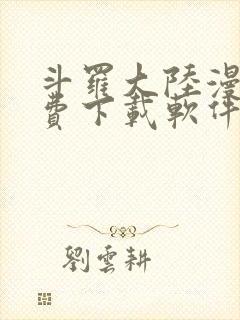 斗羅大陸漫
費下載軟件
劉雲耕